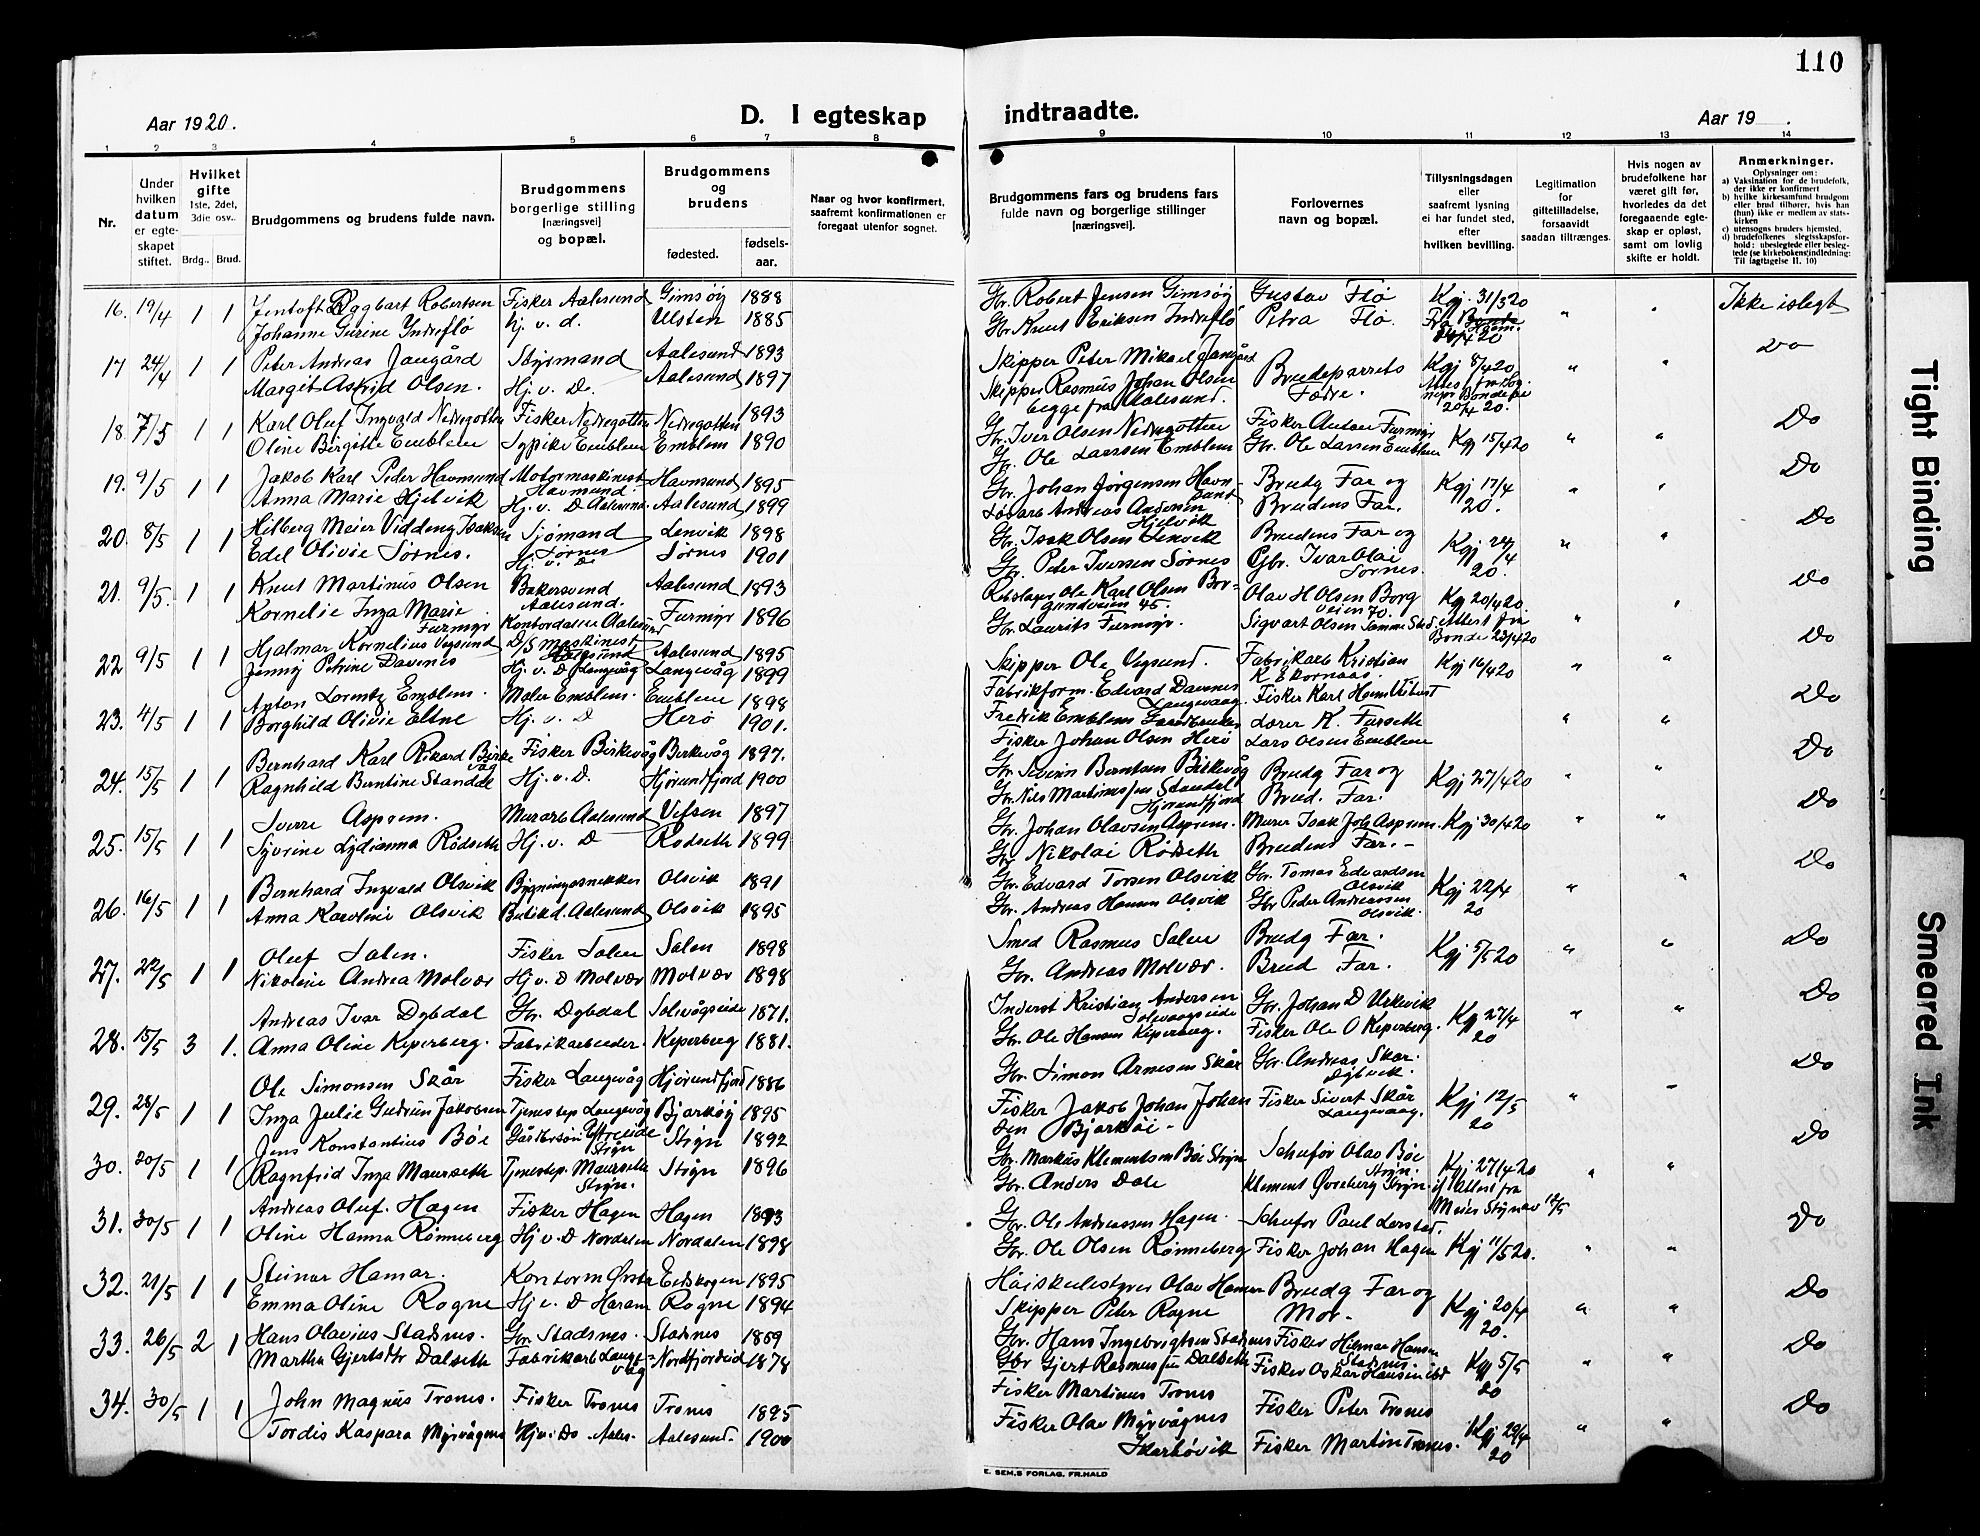 110
Aar 1920.
D. I egteskap indtraadte.
Aar 19 .
1 2 3 4 5 6 7 8 9 10 11 12 13 14
Nr.
Under hvilken datum er egteskapet stiftet.
Hvilket gifte 1ste, 2det, 3die osv..
Brdg.. Brud.
Brudgommens og brudens fulde navn.
Brudgommens borgerlige stilling [næringsvei] og bopæl.
Brudgommens og brudens
fødested.
fødselsaar.
Naar og hvor konfirmert, saafremt konfirmationen er foregaat utenfor sognet.
Brudgommens fars og brudens fars fulde navn og borgerlige stillinger [næringsvei].
Forlovernes navn og bopæl.
Tillysningsdagen eller saafremt lysning ei har fundet sted, efter hvilken bevilling.
Legitimation for giftetilladelse, forsaavidt saadan tiltrænges.
Hvis nogen av brudefolkene har været gift før, hvorledes da det foregaaende egteskap er opløst, samt om lovlig skifte er holdt.
Anmerkninger.
Oplysninger om:
a) Vaksination for de brudefolk, der ikke er konfirmert
b) hvilke kirkesamfund brudgom eller brud tilhører, hvis han (hun) ikke er medlem av statskirken
c) utensogns bruders hjemsted.
d) brudefolkenes slegtsskapsforhold: ubeslegtede eller beslegtede (se kirkebokens indledning: Til Iagttagelse II. 10)
16. 19/4 1 1 Jentoft Robertsen Fisker Aalesund Gimsøy 1888 Gbr. Robert Jensen Gimsøy Gustav Flø Kgj. 31/3 20 " " Ikke islegt
Johanne Gurine Yndreflø Hj. v. d. Ulsten 1885 Gbr. Knut Eriksen Indreflø Petra Flø.
17 24/4 1 1 Peter Andreas Jangård Styrmand Aalesund 1893 Skipper Peter Mikael Jangård Brudeparrets Kgj 8/4 20 " " Do
Margit Astrid Olsen. Hj. v. D. Aalesund 1897 Skipper Rasmus Johan Olsen Fædre.
begge fra Aalesund. 20/4 20.
18. 7/5 1 1 Karl Oluf Ingvald Nedregotten Fisker Nedregotten Nedregotten 1893 Gbr. Iver Olsen Nedregotten Fisker Anton Furmyr Kgj 15/4 20 " " Do
Oline Birgitte Emblem Sypike Emblem Emblem 1890 Gbr. Ole Larssen Emblem Gbr. Ole Larsen Emblem
19. 9/5 1 1 Jakob Karl Peder Havnsund Motormaskinest Havnsund 1895 Gbr. Johan Jørgensen Havnsund Brudg Far og Kgj 17/4 20. " " Do
Anna Marie Hjelvik Hj. v. D Aalesund Aalesund 1899 Andreas Andersen Hjelvik Brudens Far.
20. 8/5 1 1 Hilberg Meier Viddeng Isaksen Sjømand Lenvik 1898 Gbr. Isak Olsen Lenvik Brudens Far og Kgj 24/4 20. " " Do
Edel Olivie Sørnes. Sørnes Hj. v. D Sørnes 1901 Gbr. Peter Iversen Sørnes Gbr. Ivar Olai Sørnes.
21. 9/5. 1 1 Knut Martinus Olsen Bakersvend Aalesund. Aalesund 1893 Ole Karl Olsen Borgundveien 45. Olav H Olsen Borgveien 70. Kgj 20/4 20. " " Do
Kornelie Inga Marie Furmyr Kontordame Aalesund Furmyr 1896 Gbr. Laurits Furmyr. Sigvart Olsen Samme Sted Attest fra Bonde 23/4 20
22 9/5 1 1 Hjalmar Kornelius Vegsund D/S maskinest Aalesund 1895 Skipper Ole Vegsund. Fabrikarb Kristian K Ekornaas. Kgj 16/4 20 " " Do
Jenny Petrine Davenes Hj. v. D Langevåg Langevåg 1899 Fabrikform. Edvard Davenes Langevaag. Fisker Karl
23. 4/5 1 1 Anton Lorentz Emblem. Maler Emblem. Emblem 1898 Fredrik Emblem Gaardbruker Lærer K. Furseth " " Do
Borghild Olivie Eltne Hj. v. D Herø 1901. Fisker Johan Olsen Herø Lars Olsen Emblem
24. 15/5 1 1 Bernhard Karl Rikard Birkevåg Fisker Birkevåg Birkevåg 1897. Gbr. Severin Berntsen Birkevåg Brudg Far og Kgj 27/4 20 " " Do
Ragnhild Berntine Standal Hj. v. D. Hjørundfjord 1900 Gbr. Nils Martinussen Standal Hjørundfjord Brud. Far.
25. 15/5 1 1 Sverre Aspsem. Murarb Aalesund Vefsen 1897 Gbr. Johan Olavsen Aspsem. Murer Isak Joh Aspsem. Kgj 30/4 20 " " Do
Syvrine Lydianna Rødseth Hj. v. D Rødseth 1899 Gbr Nikolai Rødseth Brudens Far. -
26. 16/5 1 1 Bernhard Ingvald Olsvik Bygningssnekker Olsvik 1891 Gbr. Edvard Torsen Olsvik Gbr. Tomas Edvardsen Olsvik Kgj 22/4 20 " " Do
Anna Karoline Olsvik Butikd. Aalesund Olsvik 1895 Gbr. Andreas Hansen Olsvik Gbr Peder Andreassen Olsvik.
27. 22/5 1 1 Oluf Salen. Fisker Salen Salen 1898 Smed Rasmus Salen Brudg Far. Kgj 5/5 20 " " Do
Nikoline Andrea Molvær Hj v. D Molvær Molvær 1898 Gbr. Andreas Molvær. Brud Far.
28. 15/5 3 1. Andreas Ivar Dybdal Gbr. Dybdal Solevågseide 1871. Inderst Kristian Andersen Solevaagseide Gbr. Johan D Urkevik Kgj 27/4 20 " " Do
Anna Oline Kiperberg. Fabrikarbeider. Kiperberg 1881. Gbr. Ole Hansen Kiperberg. Fisker Ole O Kiperberg.
29. 28/5 1 1 Ole Simonsen Skår Fisker Langevåg Hjørundfjord 1886 Gbr. Simon Arnesen Skår Gbr. Andreas Skar. Dybvik. Kgj 12/5 20 " - Do
Inga Julie Gudrun Jakobsen Tjenestep Langevåg Bjarkøy 1895 Fisker Jakob Johan Johansen Bjarkøi - Fisker Sivert Skår Langevaag.
30. 30/5 1 1 Jens Konstantius Bøe Stryn Stryn 1892 Gbr. Markus Klementsen Bøe Stryn Schufør Olav Bøe Stryn. Kgj 27/4 20 " " Do
Ragnfrid Inga Maurseth Tjenestep. Maurseth Stryn. Stryn 1896 Gbr. Anders Dale Klement Øvreberg Stryn. if Attest fra Meier Stryn av 12/5
31. 30/5 1 1 Andreas Oluf. Hagen Fisker Hagen Hagen 1893 Gbr. Ole Andreassen Hagen. Schufør Paul Lerstad. Kgj 11/5 20. " " Do
Oline Hanna Rønneberg Hj v. D Nordalen Nordalen 1898 Gbr. Ole Olsen Rønneberg Fisker Johan Hagen
32. 21/5 1 1 Steinar Hamar. Ørsta Eidskogen 1895 Høiskulestyrer Olav Hamar Brudg Far og Kgj 20/4 20. " " Do
Emma Oline Rogne Hj v. D Haram Rogne 1894 Skipper Peter Rogne Mor.
33. 26/5 2 1 Hans Olavius Stadsnes. Gbr. Stadsnes. Stadsnes 1869 Gbr. Hans Ingebrigtsen Stadsnes Fisker Hilmar Hansen Stadsnes. Kgj 5/5 20 " " Do
Martha Gjertsdtr Dalseth Fabrikarb Langevåg Nordfjordeid 1878 Gbr Gjert Rasmussen Dalseth Fisker Oskar Hansen ibd
34. 30/5 1 1 John Magnus Tranes. Fisker Tranes Tranes 1895 Fisker Martinus Tranes Fisker Peter Tranes Kgj 29/4 20 " " Do
Tordis Kaspara Myrvågnes Hj v. Do Aales. Aalesund. 1900 Fisker Olav Myrvågnes Skarbøvik Fisker Martin Tranes.
E. SEM.S FORLAG, FR.HALD
Tight Binding
Smeared Ink